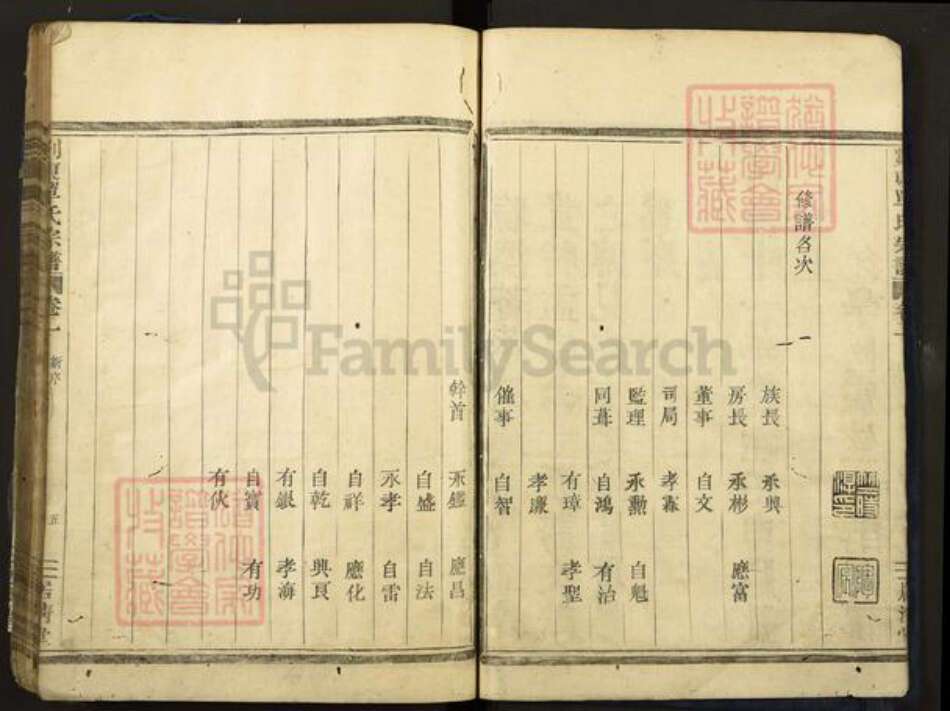 修譜各次
族長 承興
房長 承彬 應富
董事 自文
司局 孝森
監理 承勳 自魁
同葺 自鴻 有治
有璋 孝聖
孝廉
催事 自智
幹首 永鑑 應昌
自盛 自法
永孝 自雷
自祥 應化
自乾 興良
有銀 孝海
自賓 有功
有伙
氏宗譜 卷一
五
FamilySearch